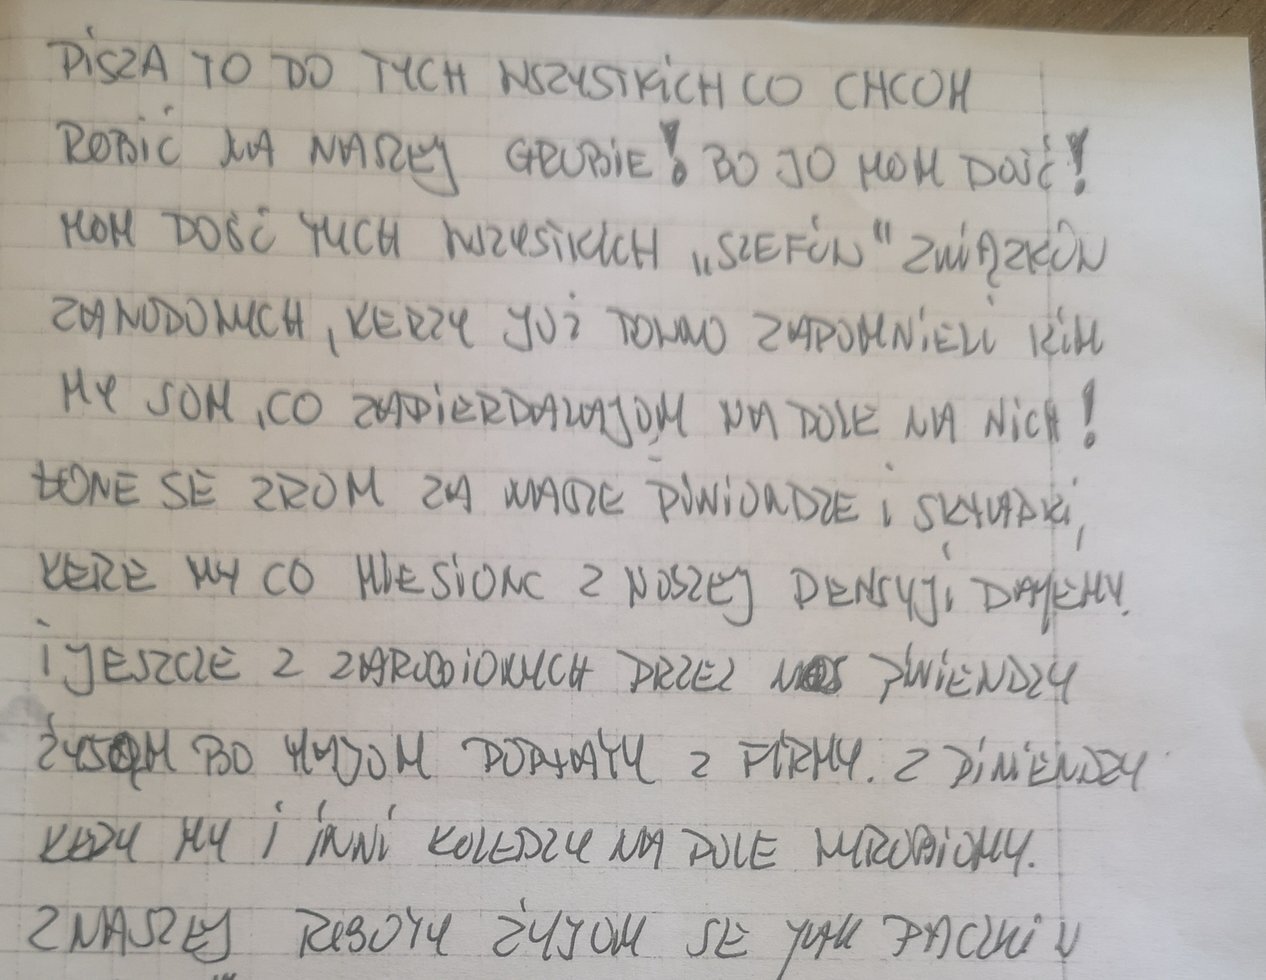 PISZA TO DO TYCH WSZYSTKICH CO CHCOM
ROBIĆ NA NASZEJ GRUBIE! BO JO MOM DOŚĆ!
MOM DOŚĆ TYCH WSZYSTKICH „SZEFÓW" ZWIĄZKÓW
ZAWODOWYCH, KERZY JUŻ DOWNO ZAPOMNIELI KIM
MY SOM, CO ZAPIERDALAJOM NA DOLE NA NICH!
ŁONE SE ZROM ZA NASZE PIWIONDZE I SKŁADKI,
KERE MY CO MIESIONC Z NOSZEJ PENSYJI DAJEMY.
I JESZCZE Z ZAROBIONYCH PRZEZ NOS PIWIENDZY
BO MAJOM DOPŁATY Z FIRMY. Z PINIENDZY
KERZY MY I INNI KOLEDZY NA DOLE WYROBIOMY.
Z NASZEJ ROBOTY ŻYJOM SE JAK PACZKI W